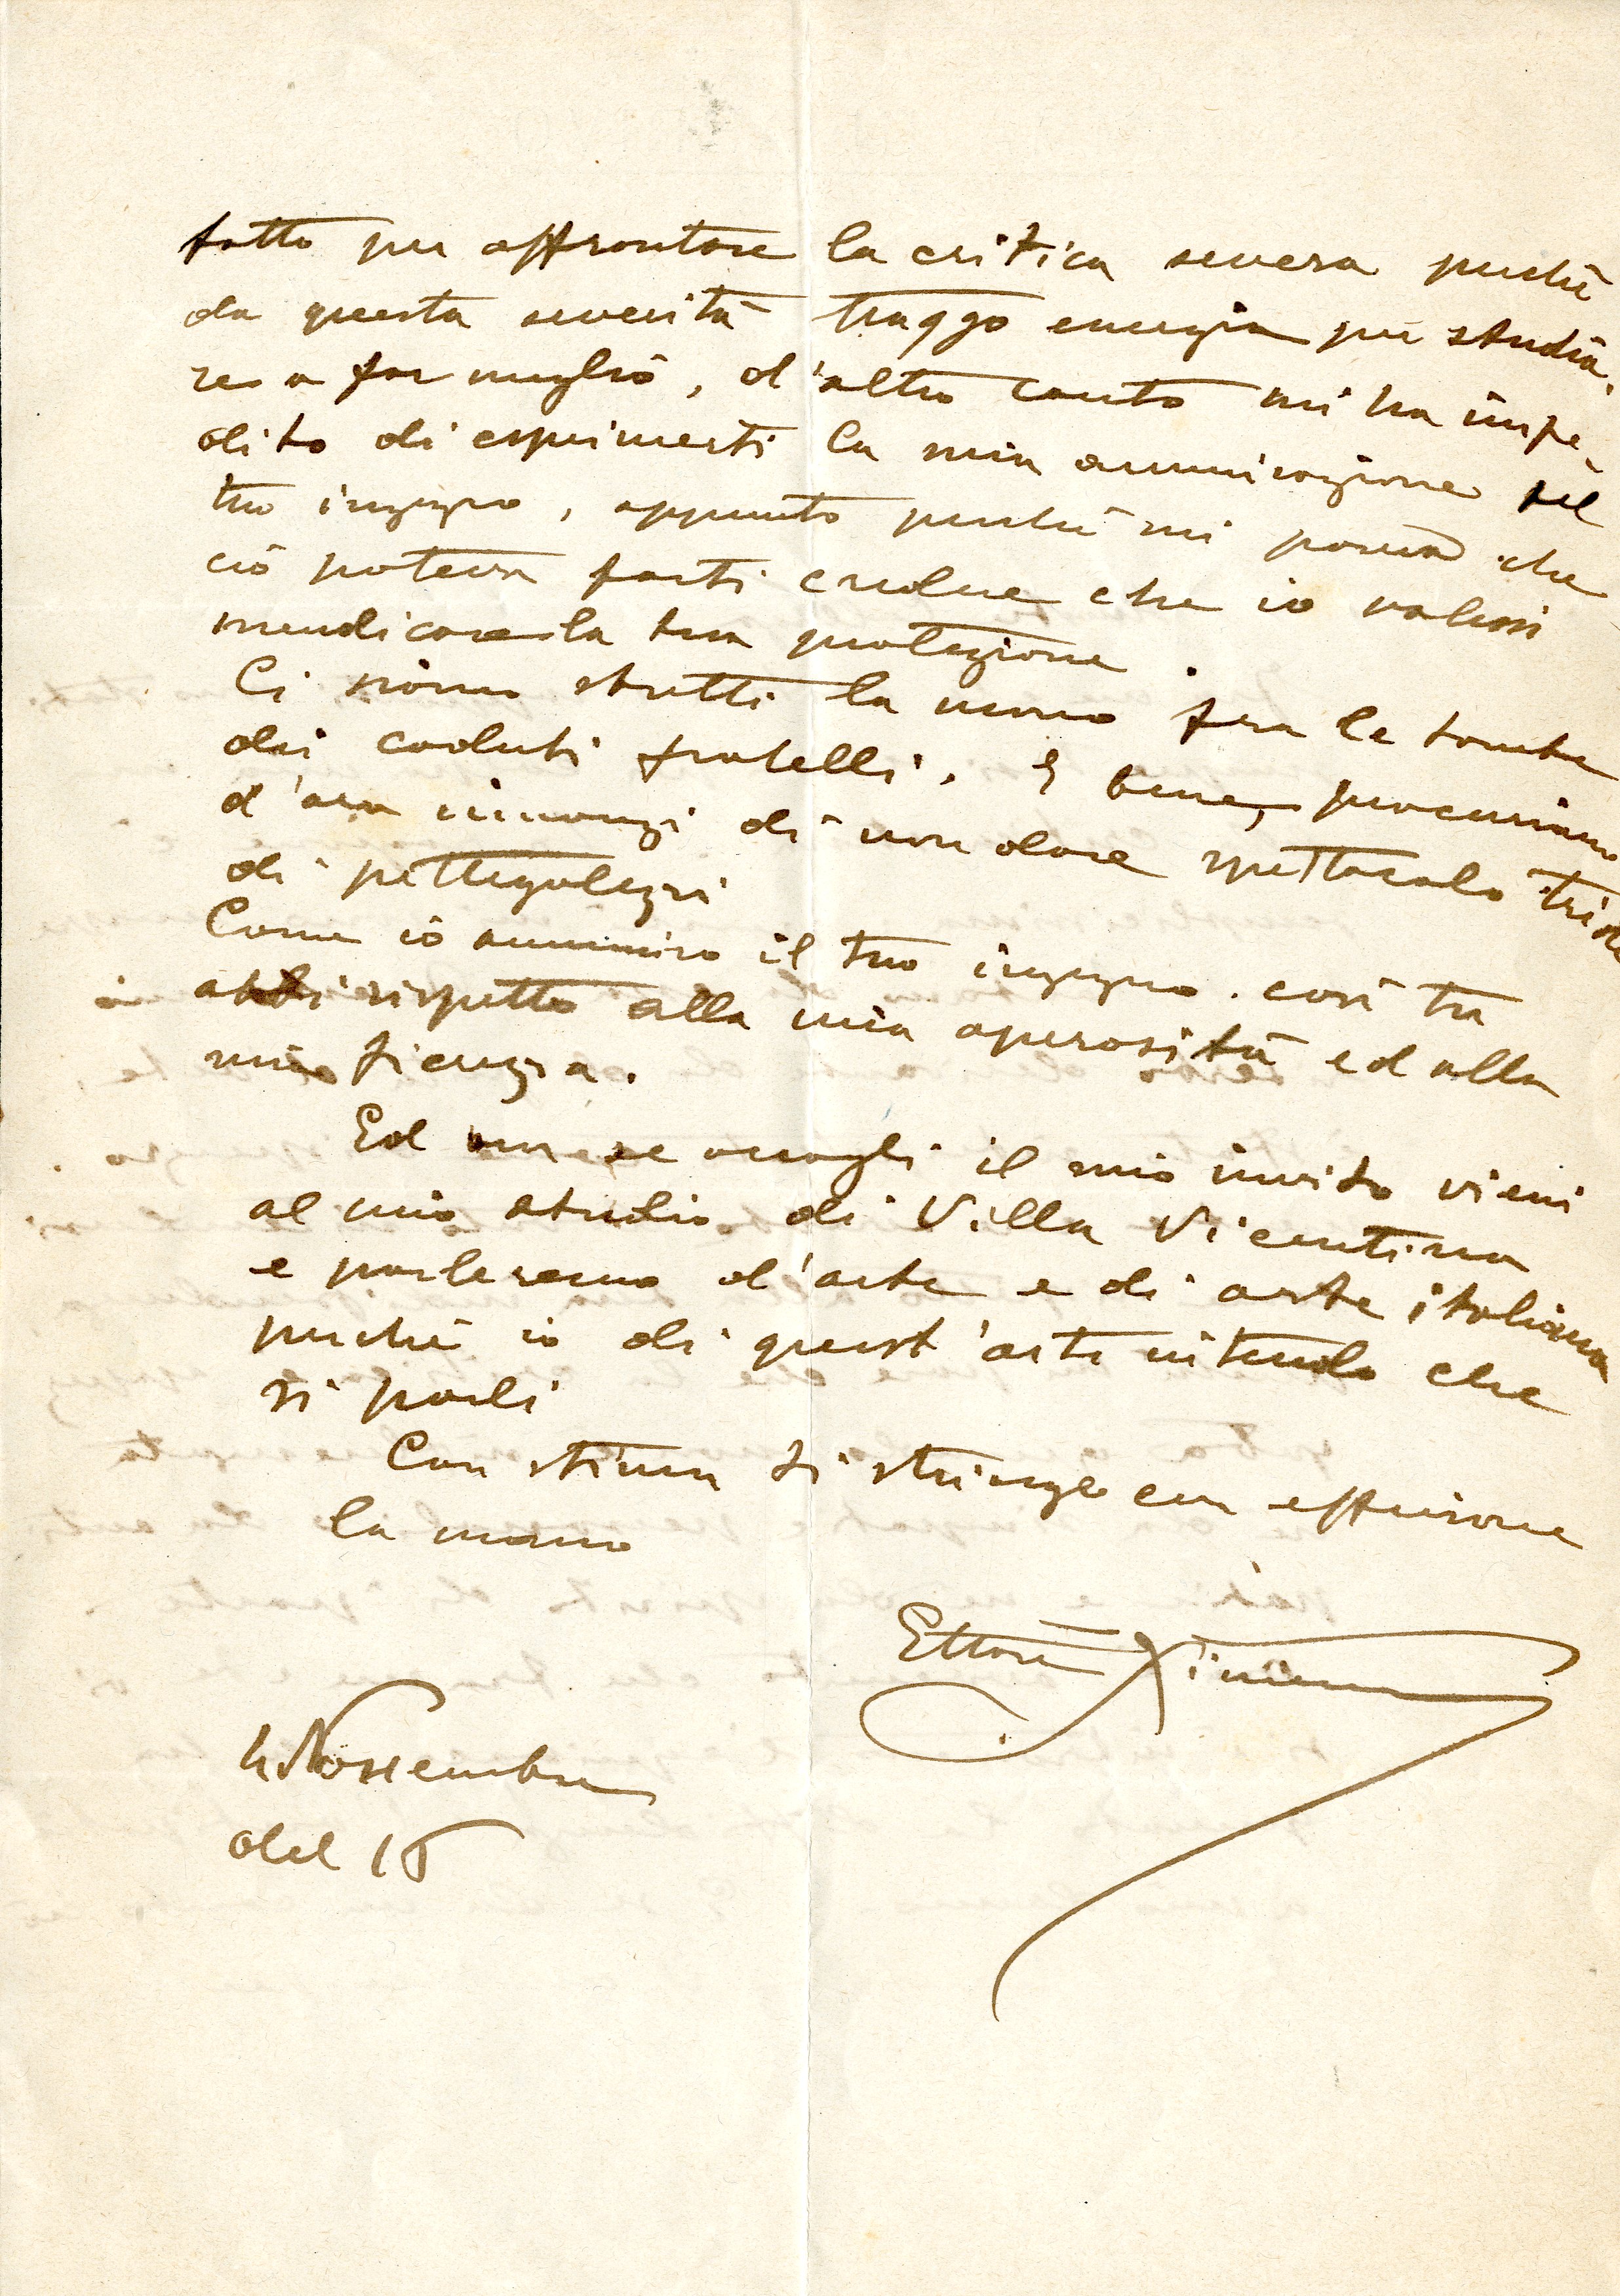 fatto per affrontare la critica severa perchè
da questa severità traggo energia per studia,
re a far meglio, d'altro canto mi ha impe,
dito di esprimerti la mia ammirazione pel
tuo ingegno, appunto perchè mi pareva che
ciò poteva farti credere che io volessi
mendicare la tua protezione.
Ci siamo stretti la mano fra le tombe
dei caduti fratelli. E bene, procuriamo
d'ora innanzi di non dare spettacolo triste
di pettegolezzi
Come io ammiro il tuo ingegno. così tu
abbi rispetto alla mia operosità ed alla
mia fierezza.
Ed ora se accogli il mio invito vieni
al mio studio di Villa Vicentina
e parleremo d'arte e di arte italiana
perchè io di quest'arte intendo che
si parli
Con stima ti stringo con effusione
la mano
Ettore Ximenes
4 Novembre
del 16